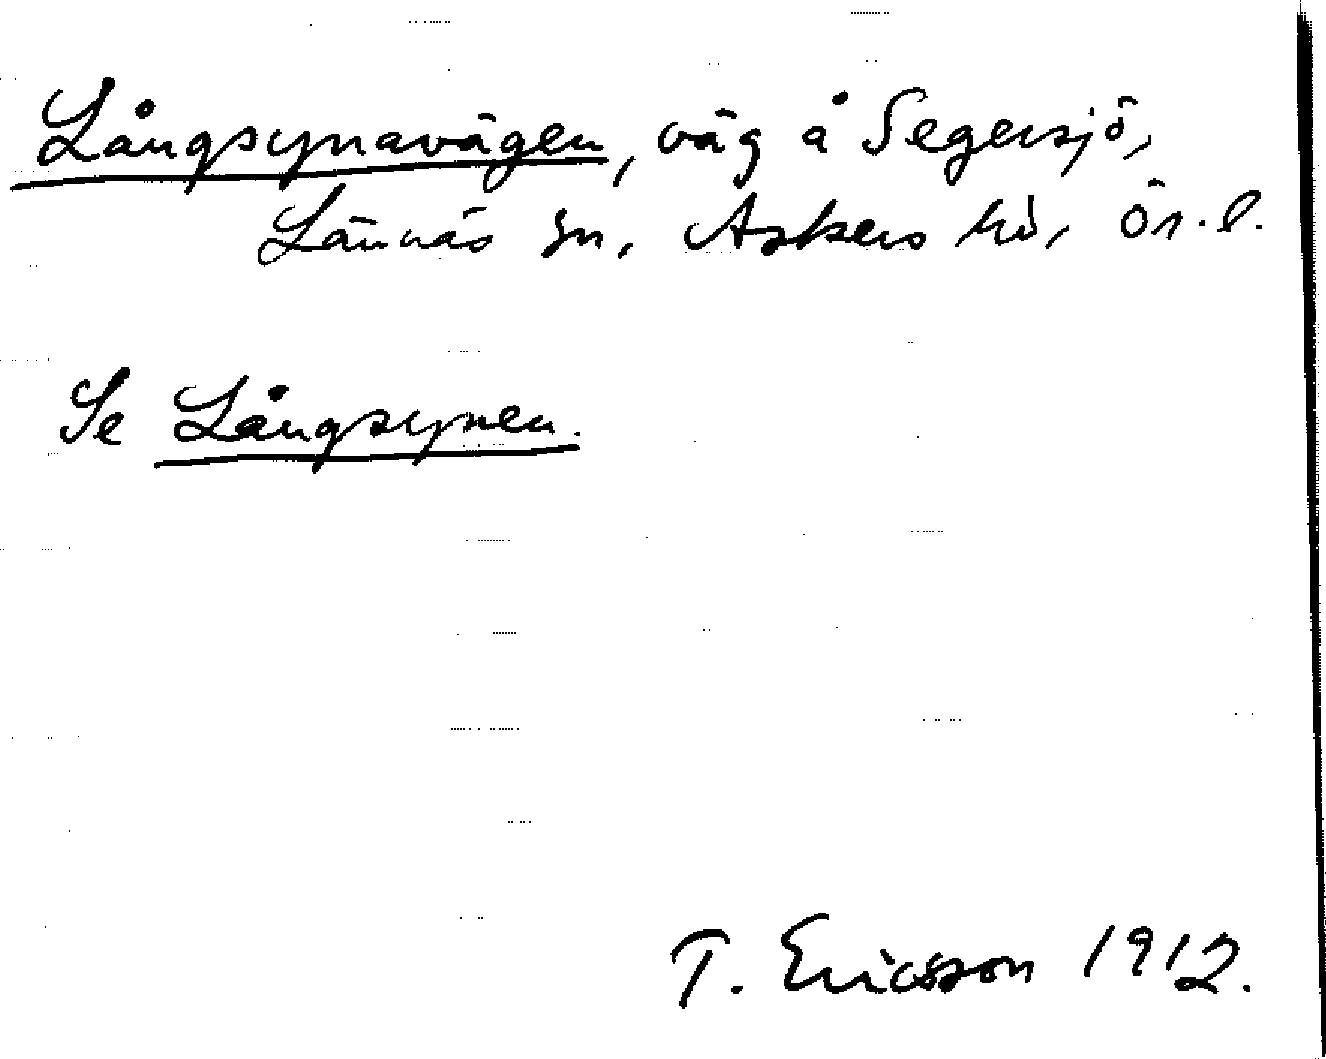 Långsynavägen, väg å Segersjö,
Lännäs sn, Askers hd, Ör. l.
Se Långsynen.
T. Ericsson 1912.